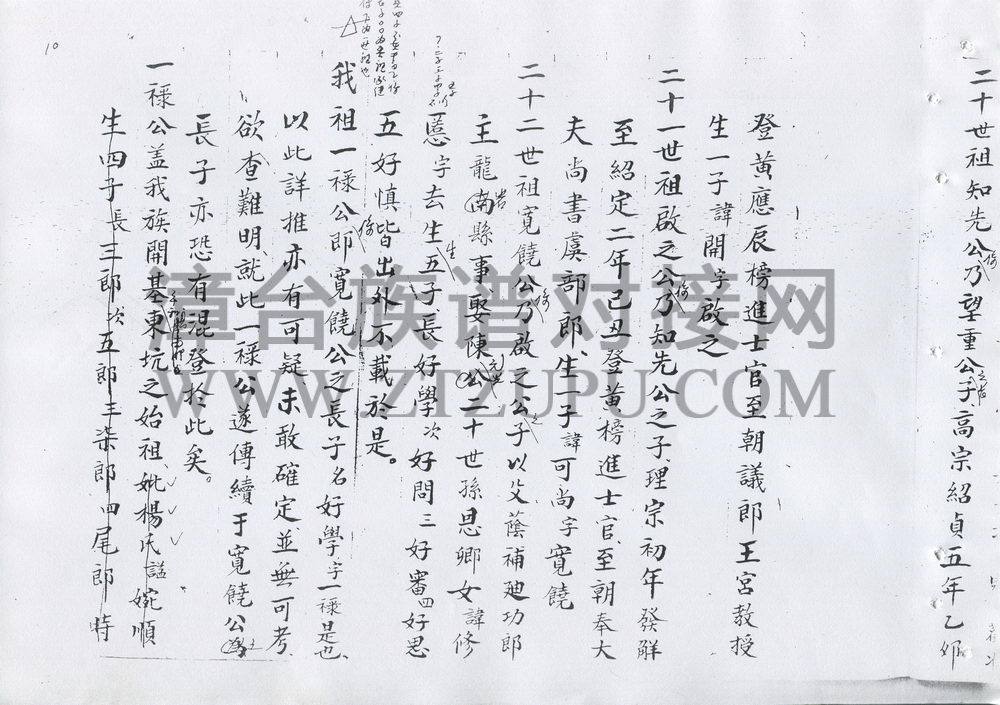 二十世祖知先公乃望重公子高宗紹貞五年乙卯
登黃應辰榜進士官至朝議郎王宮教授
生一子諱開字啟之
二十一世祖啟之公乃知先公之子理宗初年發解
至紹定二年己丑登黃榜進士官至朝奉大
夫尚書虞部郎生一子諱可尚字寬饒
二十二世祖寬饒公乃啟之公子以父蔭補廸功郎
主龍南縣事娶陳公二十世孫思卿女諱修
字去生五子長好學次好問三好審四好思
五好慎皆出外不載於是。
我祖一祿公即寬饒公之長子名好學字一祿是也
以此詳推亦有可疑未敢確定並無可考
欲查難明就此一祿公遂傳續于寬饒公
長子亦恐有混登於此矣。
一祿公盖我族開基東坑之始祖妣楊氏謚婉順
生四子長三郎次五郎三柒郎四尾郎特
10
漳台族谱对接网
WWW.ZTZUPU.COM